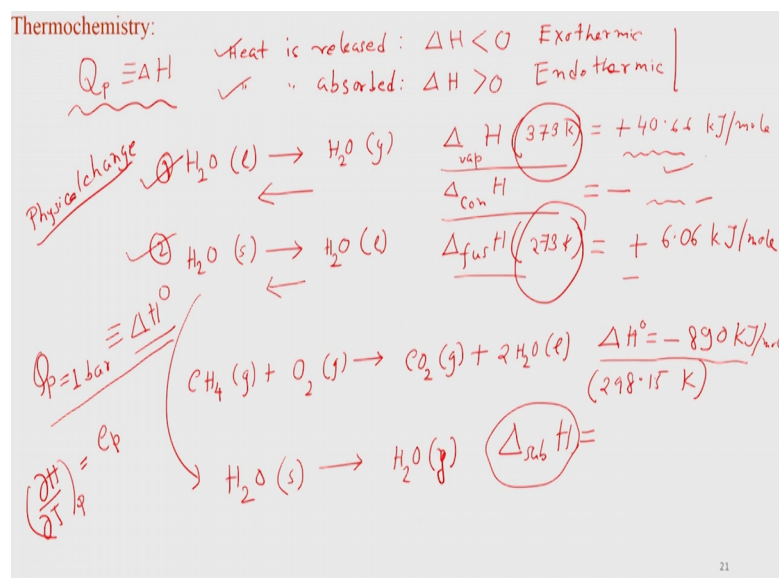 Thermochemistry:
Q_p ≡ ΔH
Heat is released : ΔH < 0 Exothermic
" " absorbed : ΔH > 0 Endothermic
Physical change
① H₂O (l) → H₂O (g) Δ_vap H (373 K) = + 40.66 kJ/mole
← Δ_con H = -
② H₂O (s) → H₂O (l) Δ_fus H (273 K) = + 6.06 kJ/mole
←
Q_p=1 bar ≡ ΔH⁰
CH₄ (g) + O₂ (g) → CO₂ (g) + 2 H₂O (l) ΔH° = - 890 kJ/mol
(298.15 K)
(∂H/∂T)_p = C_p
H₂O (s) → H₂O (g) Δ_sub H =
21